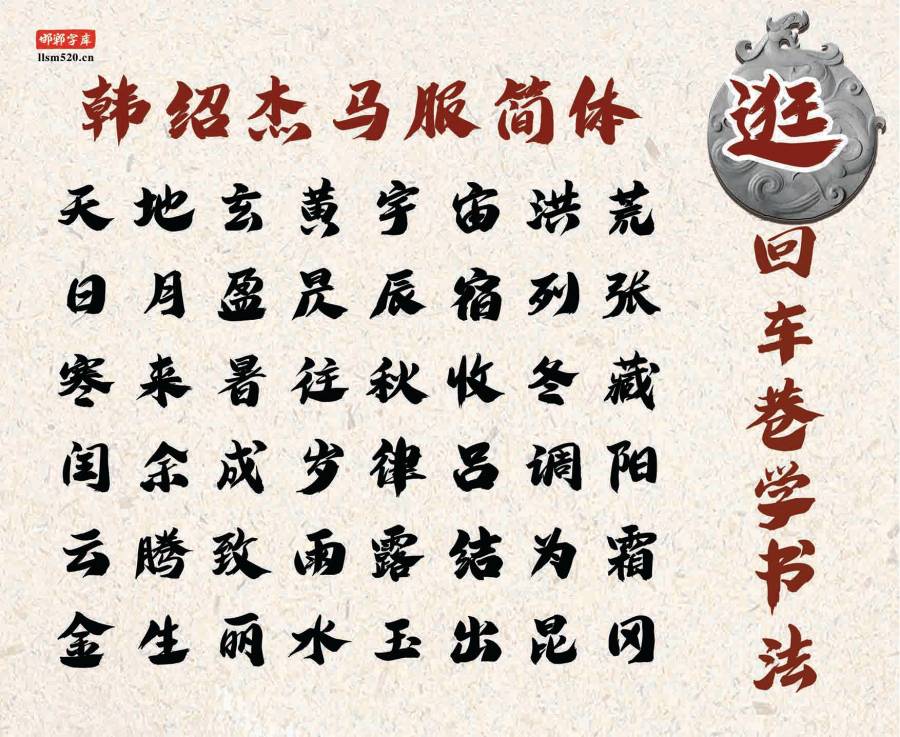 邯郸字库
llsm520.cn
韩绍杰马服简体
天地玄黄宇宙洪荒
日月盈昃辰宿列张
寒来暑往秋收冬藏
闰余成岁律吕调阳
云腾致雨露结为霜
金生丽水玉出昆冈
逛回车巷学书法